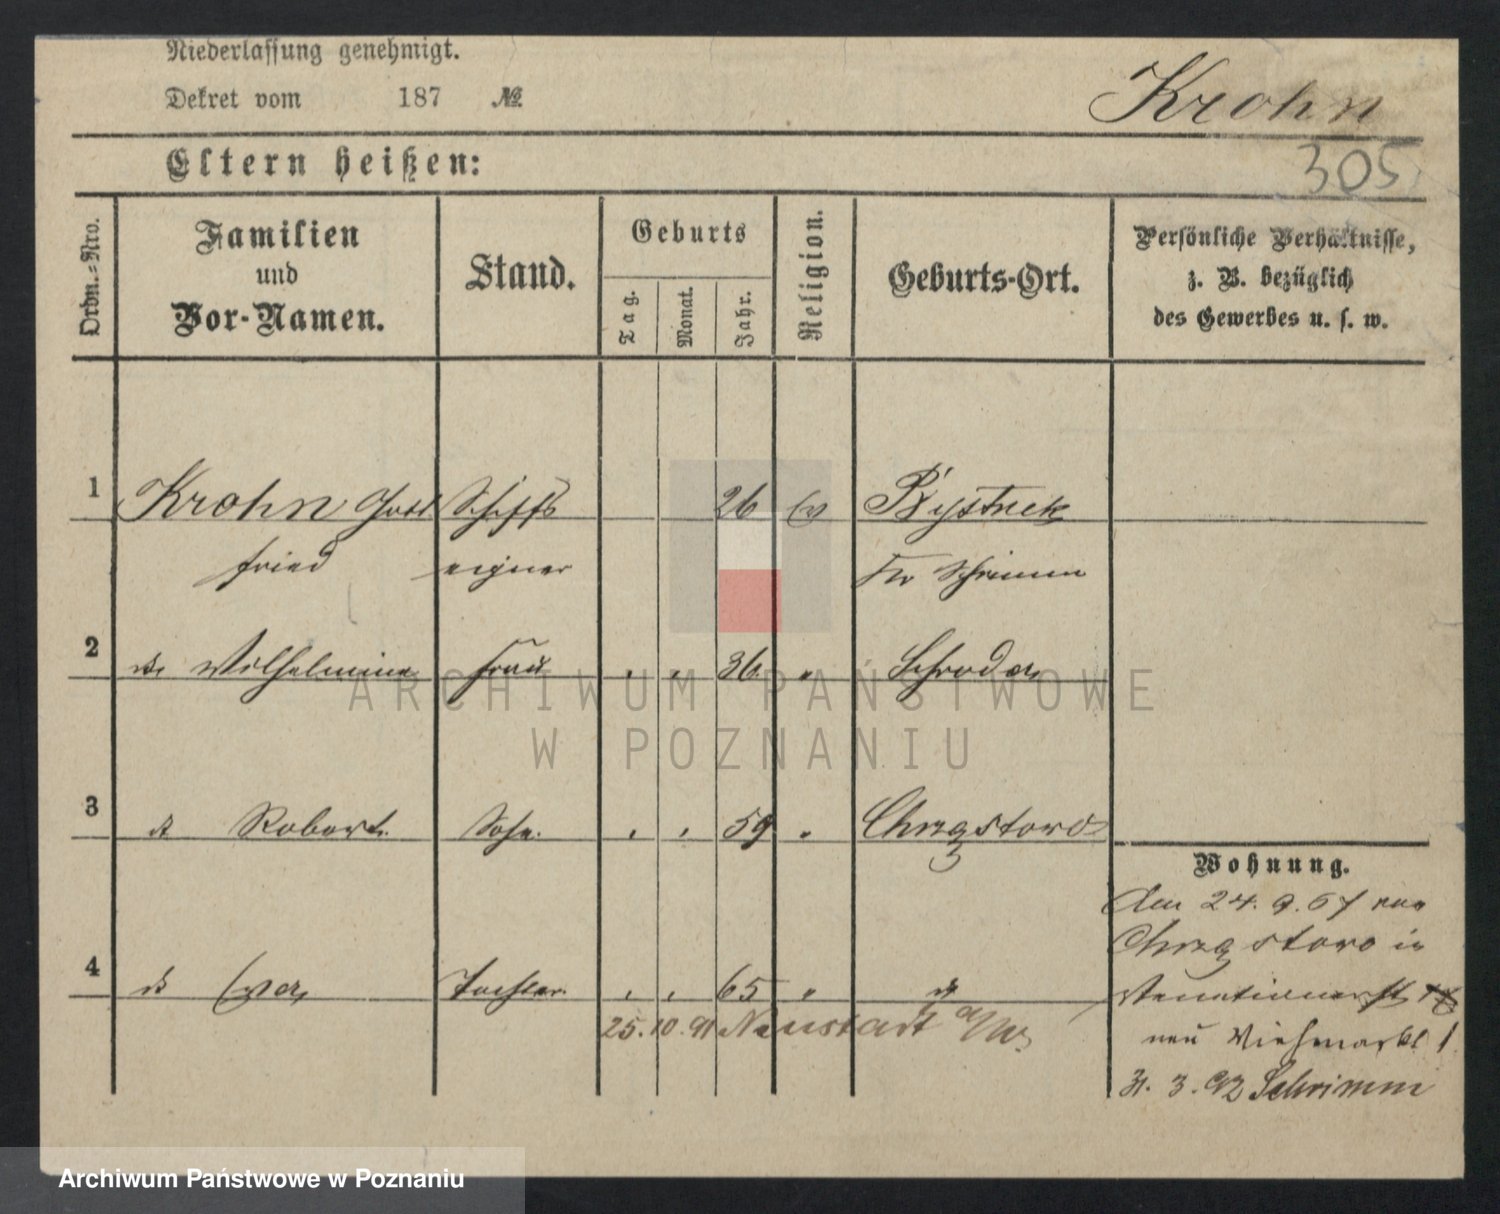 Niederlassung genehmigt.
Dekret vom 187 №
Krohn
305
Eltern heißen:
Ordn.-Nro.
Familien
und
Vor-Namen.
Stand.
Geburts
Tag.
Monat.
Jahr.
Religion.
Geburts-Ort.
Persönliche Verhältnisse,
z. B. bezüglich
des Gewerbes u. s. w.
1 Krohn Gott Schiffs 26 Ev
fried eigner Kr Schrimm
2 Wilhelmine Frau 36 " Schroda
3 Robert Sohn 59 " Chrzastowo
4 Eva Tochter 65 "
25. 10. 91 Neustadt a/W.
Wohnung.
Den 24. 9. 67 von
Chrzastowo in
Venetianerst
neu Viehmarkt 1
31. 3. 92 Schrimm
ARCHIWUM PAŃSTWOWE
W POZNANIU
Archiwum Państwowe w Poznaniu